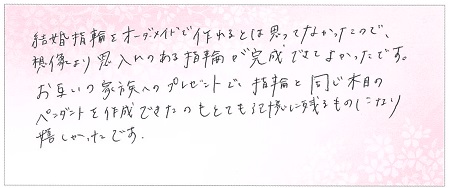 結婚指輪をオーダーメイドで作れるとは思ってなかったので、
想像より思い入れのある指輪が完成できてよかったです。
お互いの家族へのプレゼントで、指輪と同じ木目の
ペンダントを作成できたのもとても記憶に残るものになり
嬉しかったです。